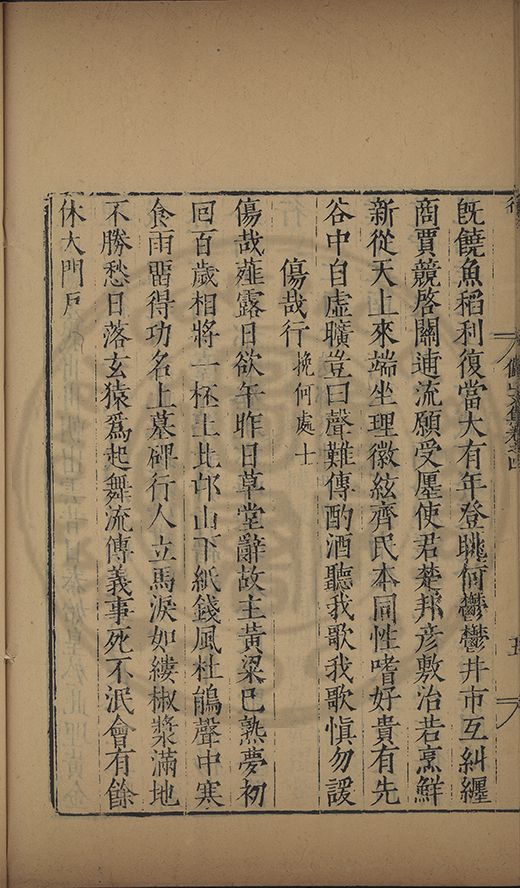 既饒魚稻利復當大有年登眺何鬱鬱井市互糾纏
商賈競啓關逋流願受廛使君楚邦彥敷治若烹鮮
新從天上來端坐理徽絃齊民本同性嗜好貴有先
谷中自虛曠豈曰聲難傳酌酒聽我歌我歌慎勿諼
傷哉行 挽何處士
傷哉薤露日欲午昨日草堂辭故主黃粱已熟夢初
回百歲相將一杯土北邙山下紙錢風杜鵑聲中寒
食雨畱得功名上墓碑行人立馬淚如縷椒漿滿地
不勝愁日落玄猿爲起舞流傳義事死不泯會有餘
休大門戶